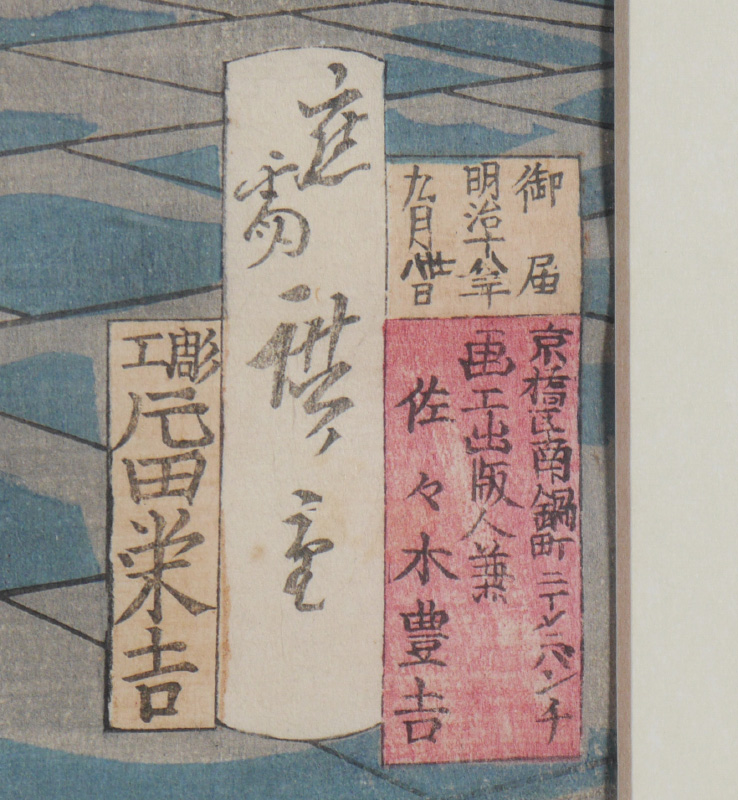 御届
明治十八年
九月廿八日
京橋区南鍋町二丁メ二バンチ
画工出版人兼
佐々木豊吉
応需
彫工
元田栄吉